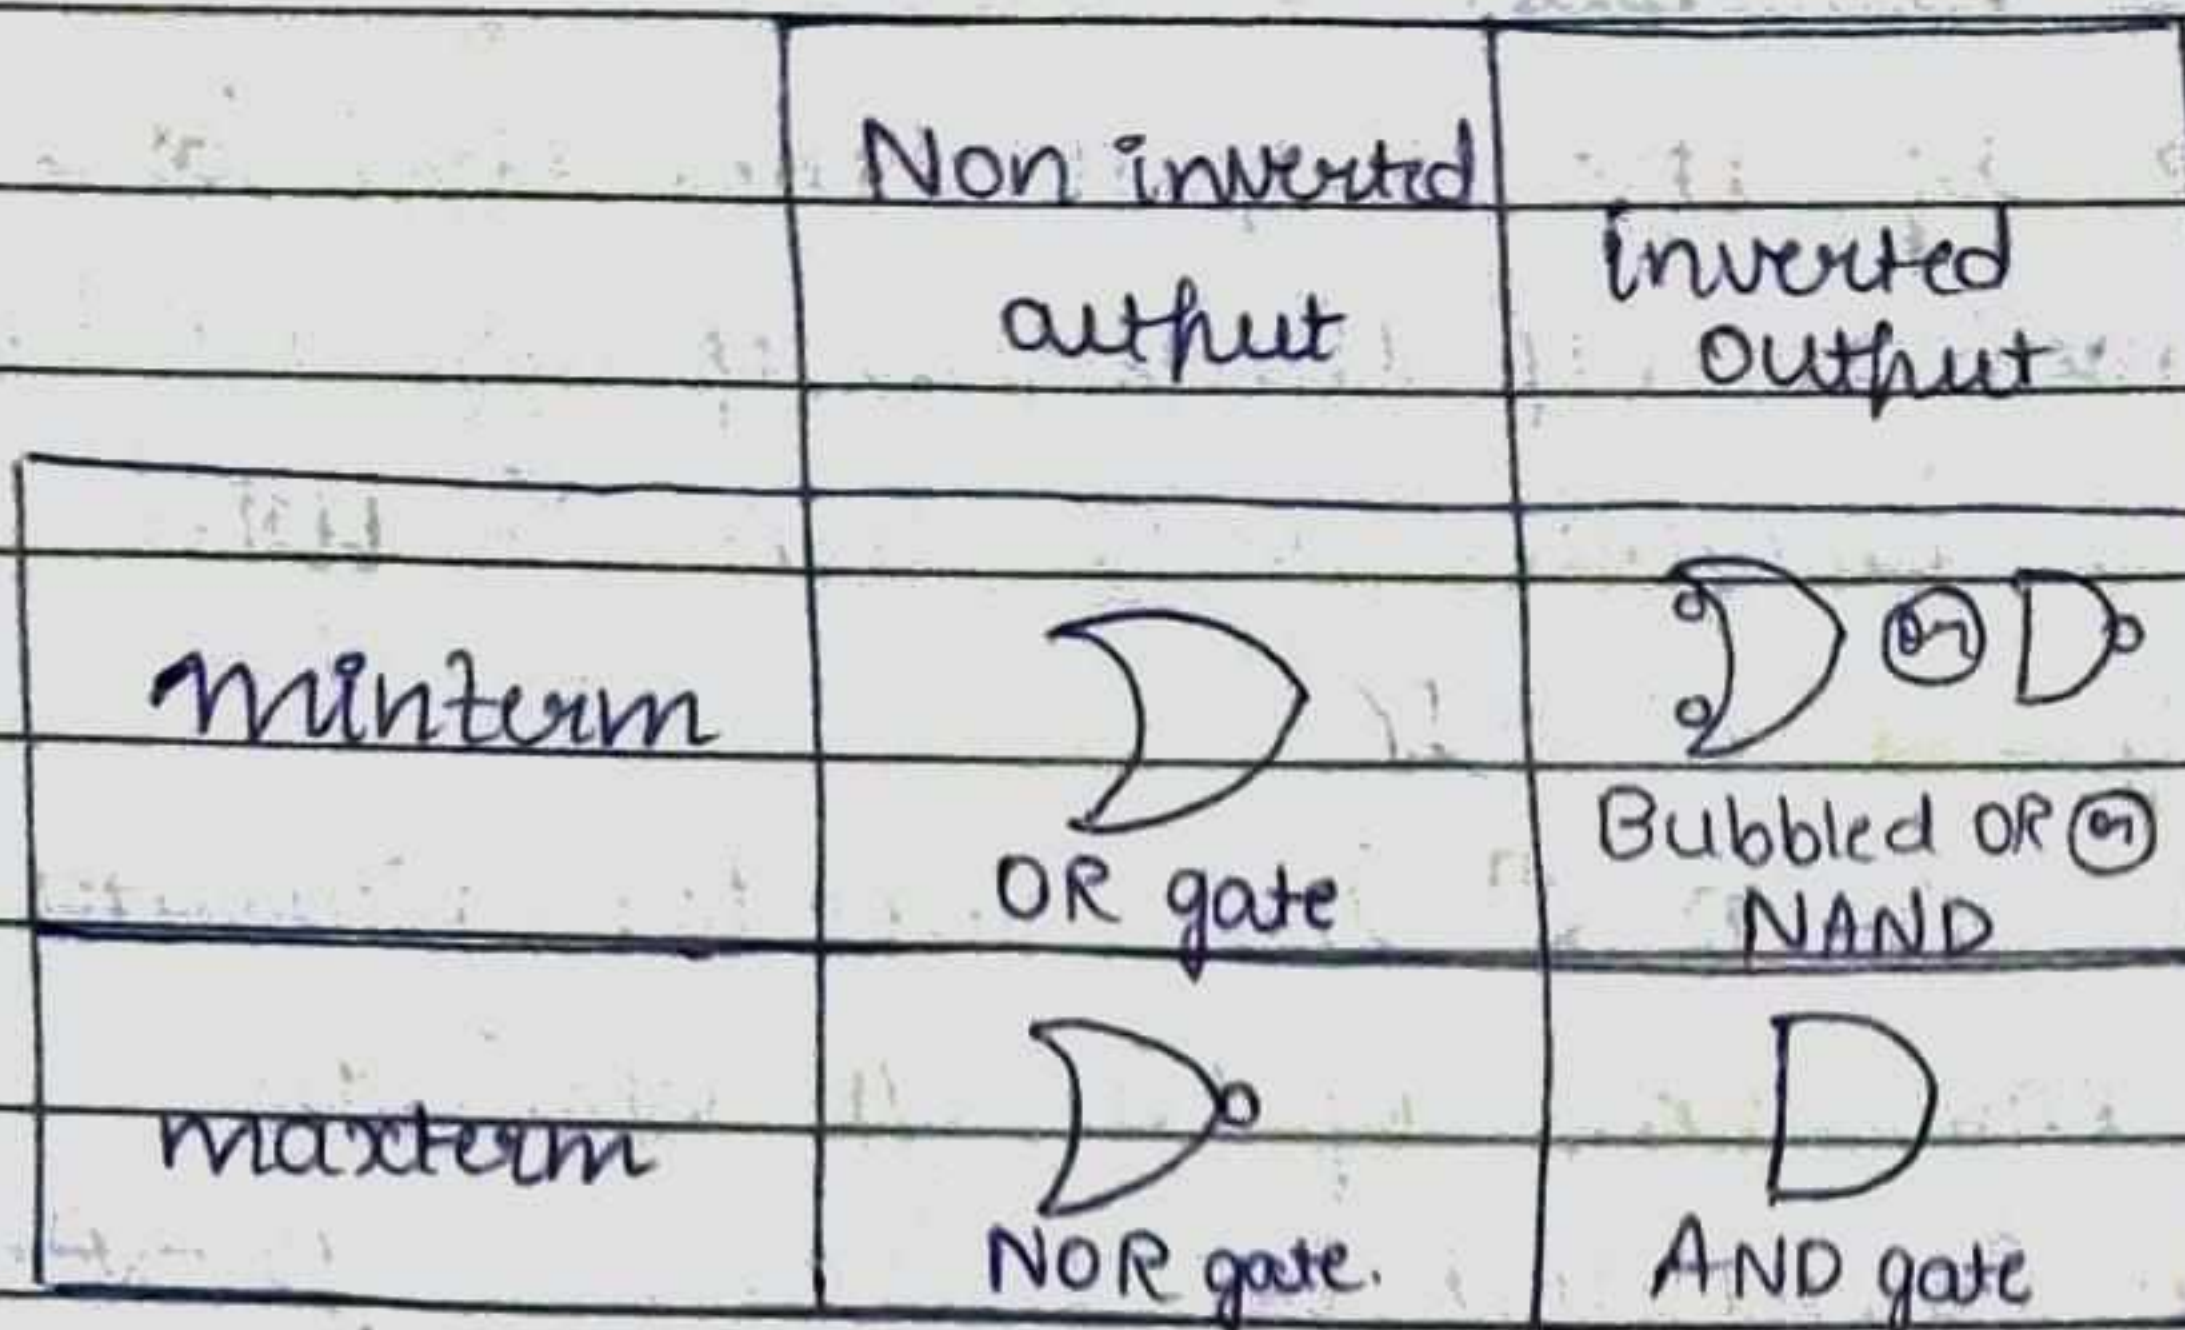 Non inverted
output
inverted
output
minterm
OR gate
or
Bubbled OR or
NAND
maxterm
NOR gate.
AND gate